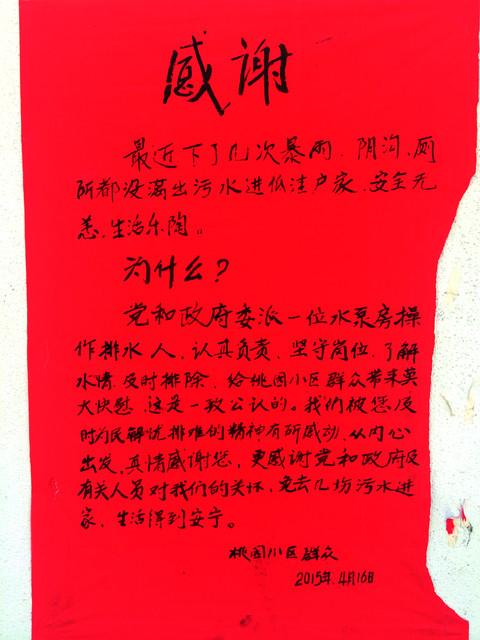 感谢
最近下了几次暴雨、阴沟、厕
所都没漏出污水进低洼户家、安全无
恙、生活乐陶。
为什么?
党和政府委派一位水泵房操
作排水人、认真负责、坚守岗位、了解
水情、及时排除、给桃园小区群众带来莫
大快慰、这是一致公认的。我们被您及
时为民解忧排难的精神有所感动、从内心
出发、真情感谢您、更感谢党和政府及
有关人员对我们的关怀、免去几场污水进
家、生活得到安宁。
桃园小区群众
2015年4月16日